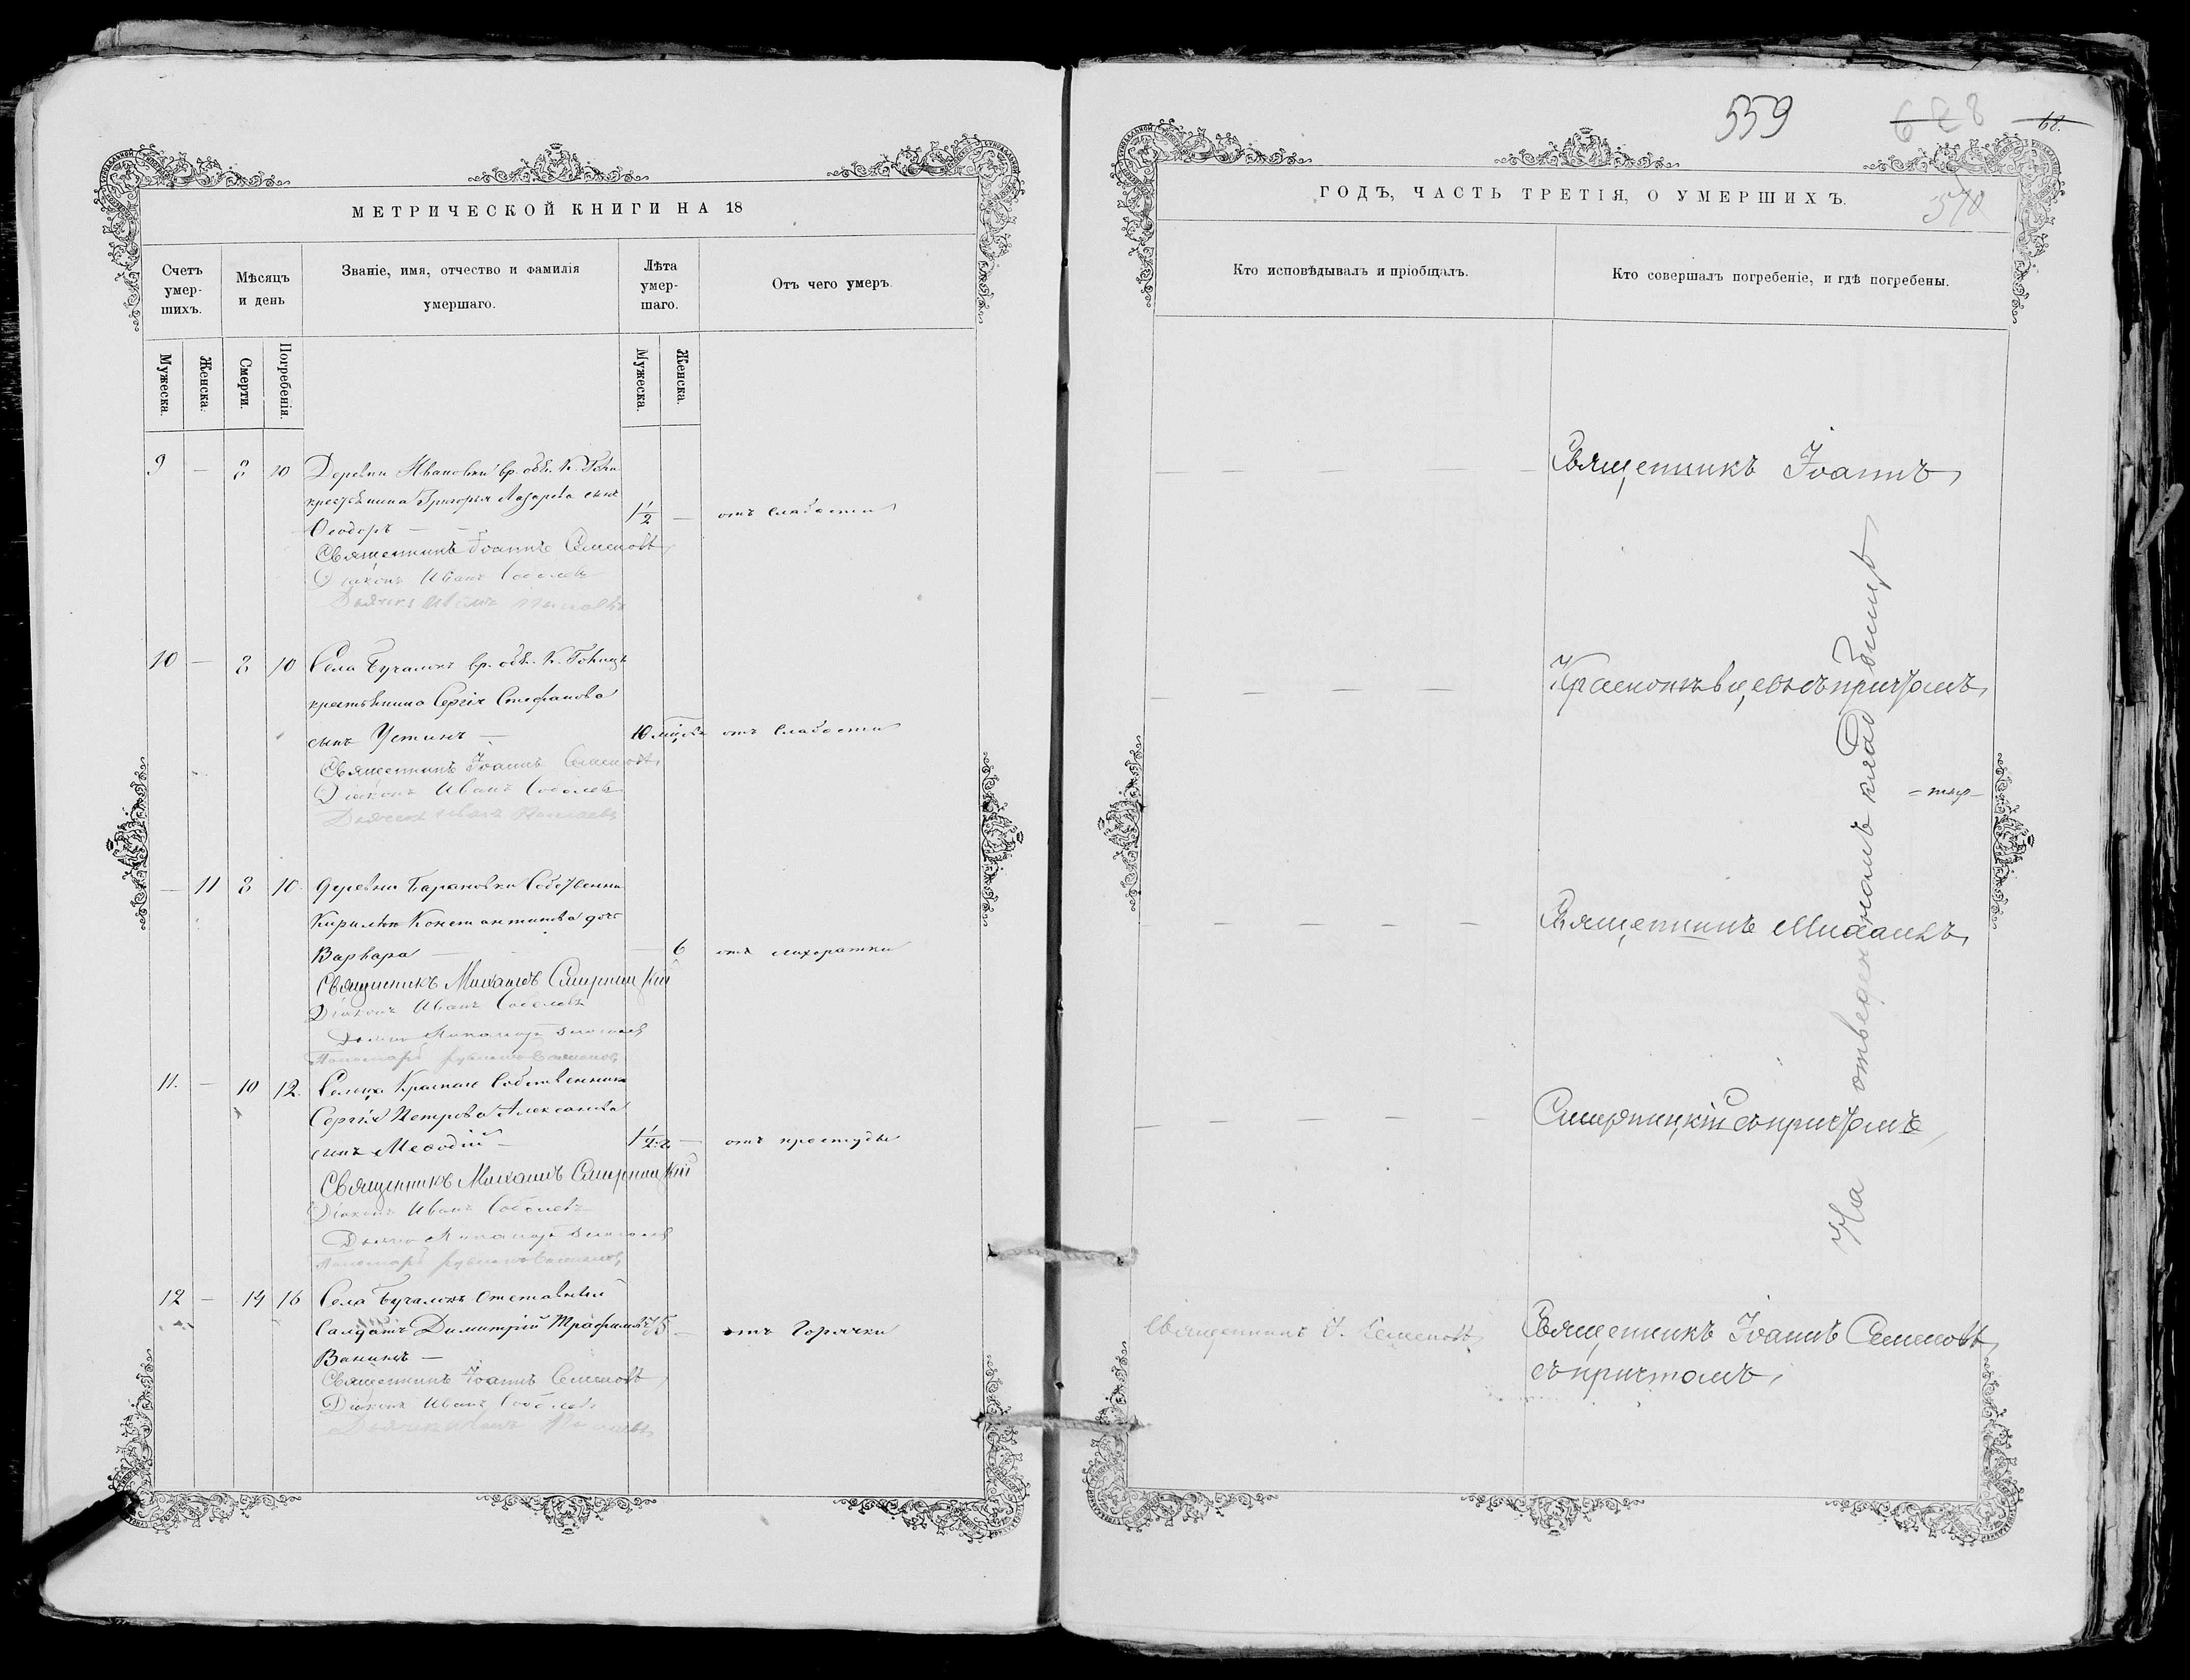 МЕТРИЧЕСКОЙ КНИГИ НА 18
Счетъ умер-шихъ.
Мѣсяцъ и день
Званіе, имя, отчество и фамилія умершаго.
Лѣта умер-шаго.
Отъ чего умеръ.
Мужеска.
Женска.
Смерти.
Погребенія.
Мужеска.
Женска.
9 — 8 10 Деревни Ивановки вр. обяз. К.
крестьянина Григорья Лазарева сынъ
Ѳеодоръ — 1 1/2 — отъ слабости
Священникъ Іоаннъ Семеновъ
Діаконъ Иванъ Соболевъ
Дьячекъ Иванъ
10 — 8 10 Села Бучалокъ вр. обяз. К.
крестьянина Сергія Стефанова
сынъ Устинъ — 10 отъ слабости
Священникъ Іоаннъ Семеновъ
Діаконъ Иванъ Соболевъ
Дьячекъ Иванъ
— 11 8 10. деревни Барановки Собственни
Константинова дочь
Варвара — — 6 отъ лихоратки
Священникъ Михаилъ Смирницкій
Діаконъ Иванъ Соболевъ
Пономарь
11. — 10 12. Сельца Краснаго Собственника
Сергія Петрова Алексанова
сынъ Меѳодій — 1 1/2 — отъ простуды
Священникъ Михаилъ Смирницкій
Діаконъ Иванъ Соболевъ
Пономарь
12 — 14 16 Села Бучалокъ Отставный
Салдатъ Димитрій 75 — отъ Горячки
Ванинъ —
Священникъ Іоаннъ Семеновъ
Діаконъ Иванъ Соболевъ
Дьячекъ Иванъ
559
628
68.
570
ГОДЪ, ЧАСТЬ ТРЕТІЯ, О УМЕРШИХЪ.
Кто исповѣдывалъ и пріобщалъ.
Кто совершалъ погребеніе, и гдѣ погребены.
— — — — — Священникъ Іоаннъ
— — — — съ причтомъ
— — — — Священникъ Михаилъ
— — — — Смирницкій съ причтомъ
На отведенномъ кладбищѣ
Священникъ І. Семеновъ
Священникъ Іоаннъ Семеновъ
съ причтомъ